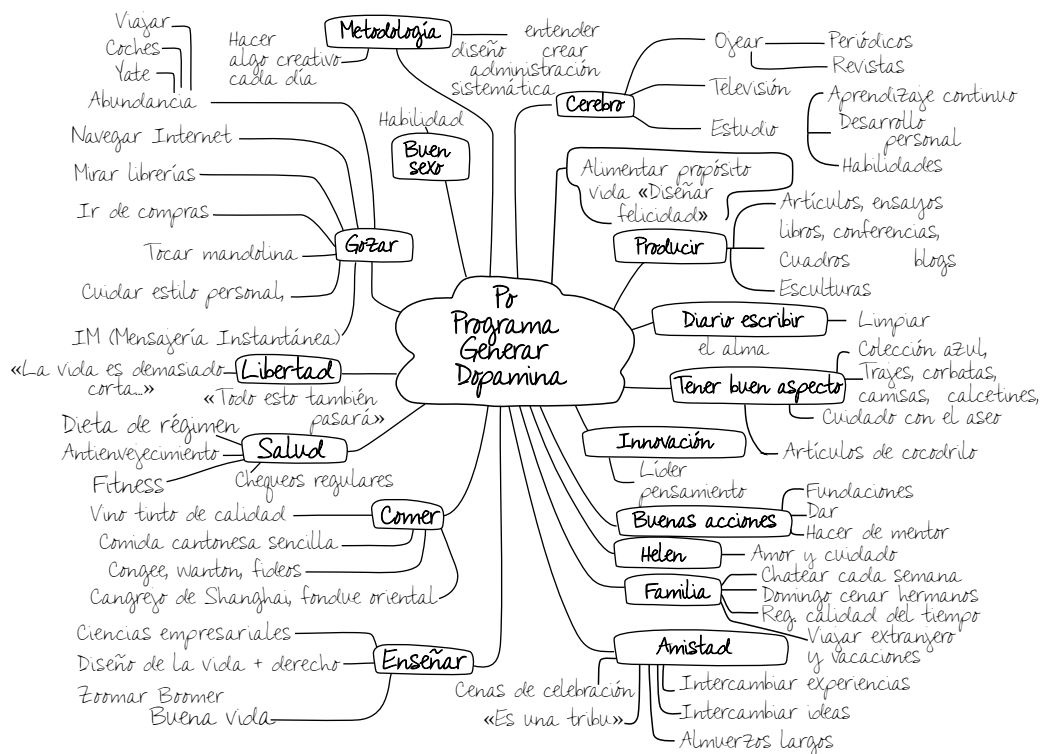 Po
Programa
Generar
Dopamina
Metodología
Hacer
algo creativo
cada día
entender
diseño crear
administración
sistemática
Cerebro
Ojear
Periódicos
Revistas
Televisión
Estudio
Aprendizaje continuo
Desarrollo
personal
Habilidades
Alimentar propósito
vida «Diseñar
felicidad»
Producir
Artículos, ensayos
libros, conferencias,
Cuadros blogs
Esculturas
Diario escribir
Limpiar
el alma
Tener buen aspecto
Colección azul,
Trajes, corbatas,
camisas, calcetines,
Cuidado con el aseo
Artículos de cocodrilo
Innovación
Líder
pensamiento
Buenas acciones
Fundaciones
Dar
Hacer de mentor
Helen
Amor y cuidado
Familia
Chatear cada semana
Domingo cenar hermanos
Reg. calidad del tiempo
Viajar extranjero
y vacaciones
Amistad
Intercambiar experiencias
Intercambiar ideas
Almuerzos largos
Cenas de celebración
«Es una tribu»
Enseñar
Ciencias empresariales
Diseño de la vida + derecho
Zoomar Boomer
Buena vida
Comer
Vino tinto de calidad
Comida cantonesa sencilla
Congee, wanton, fideos
Cangrejo de Shanghai, fondue oriental
Salud
Dieta de régimen
Antienvejecimiento
Fitness
Chequeos regulares
Libertad
«La vida es demasiado
corta...»
«Todo esto también
pasará»
Gozar
Viajar
Coches
Yate
Abundancia
Navegar Internet
Mirar librerías
Ir de compras
Tocar mandolina
Cuidar estilo personal,
IM (Mensajería Instantánea)
Habilidad
Buen
sexo